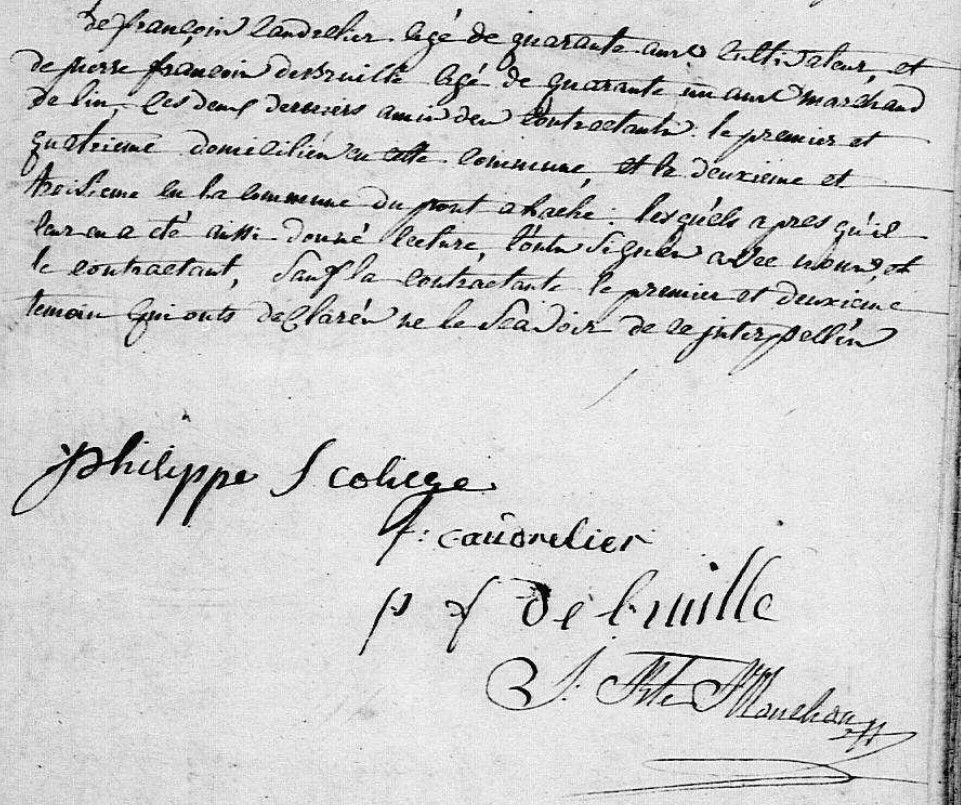 de françois Caudrelier agé de quarante ans cultivateur, et
de pierre françois debruille agé de quarante un ans marchand
de lin, les deux derniers amis des Contractants. le premier et
quatrieme domiciliés en cette commune, et le deuxieme et
troisieme en la commune du pont a hache. lesquels apres qu'il
leur en a été aussi donné lecture, l'onts signés avec nous, et
le contractant, sauf la contractante le premier et deuxieme
temoin qui onts déclarés ne le scavoir de ce interpellés
philippe Scohege
f: caudrelier
p f debruille
J. Bte